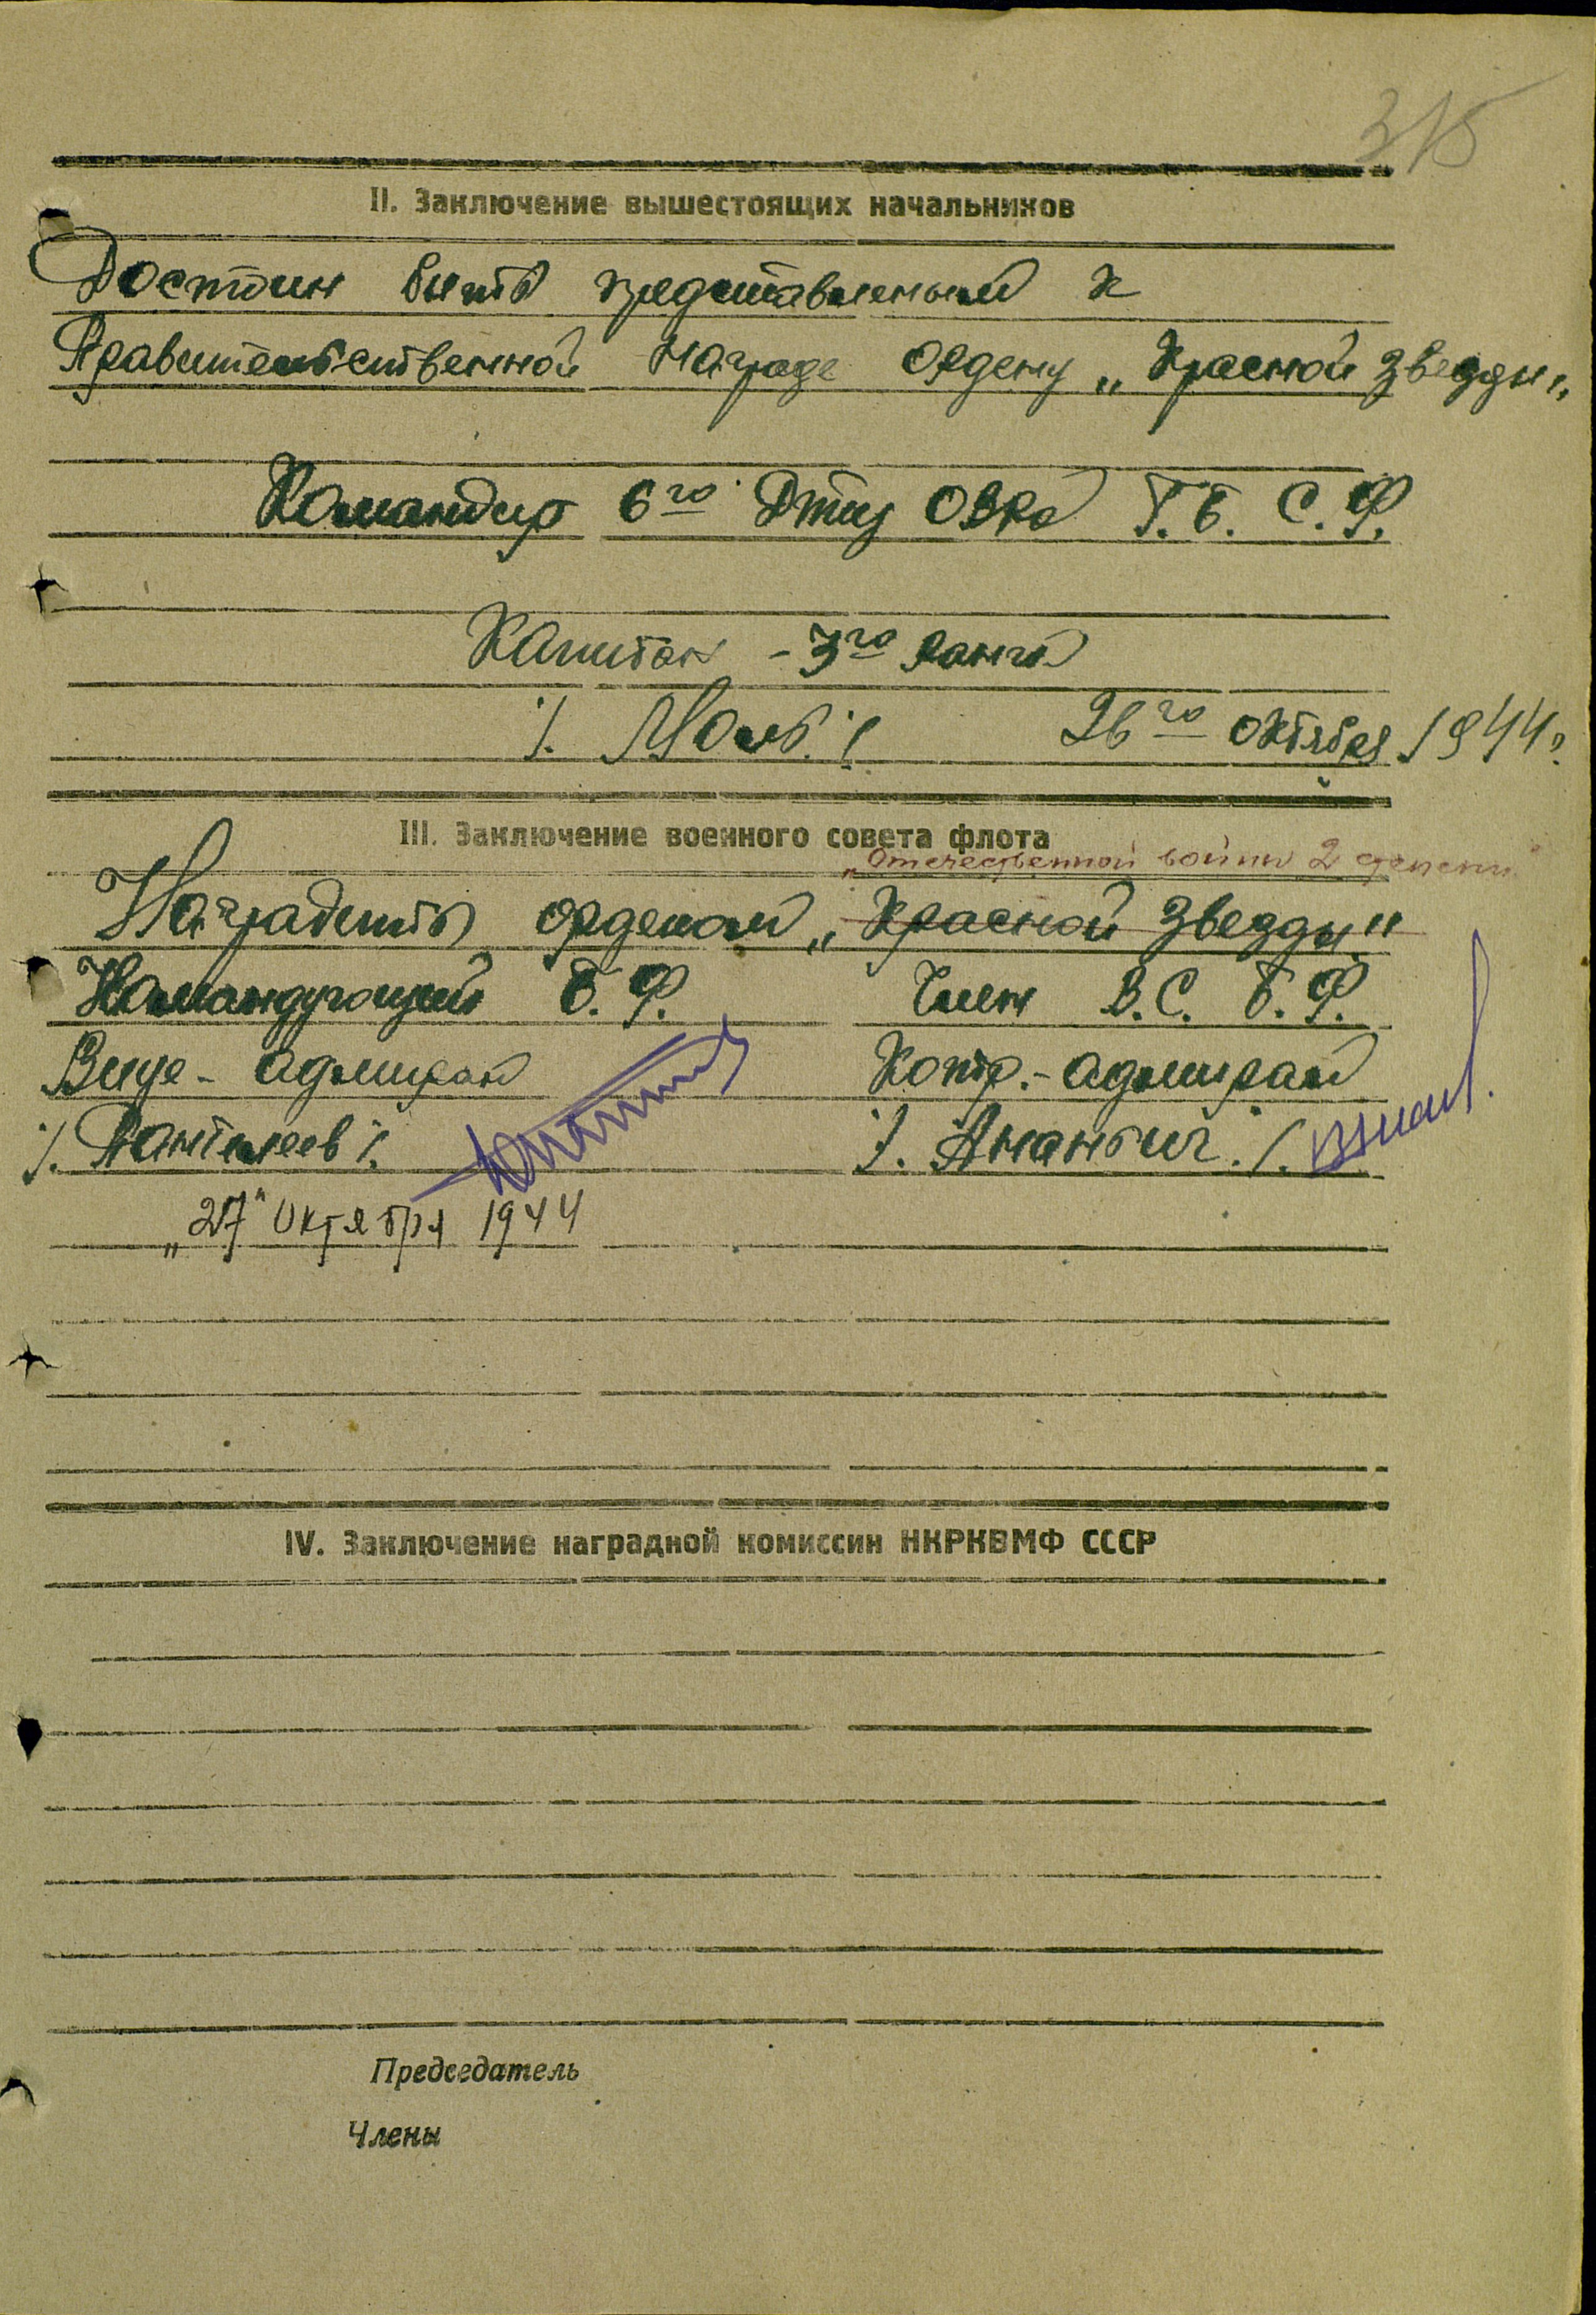 315
II. Заключение вышестоящих начальников
Достоин быть представленным к
Правительственной награде ордену „Красной звезды„
Командир 6го Дтщ ОВРа Г. Б. С. Ф.
Капитан -3го ранга
26го октября 1944г.
III. Заключение военного совета флота
„Отечественной войны 2 степени"
Наградить орденом „Красной звезды"
Командующий Б. Ф. Член В. С. Б. Ф.
Вице-адмирал Контр.-адмирал
/. Пантелеев /. /. Ананьич. /.
„27" октября 1944
IV. Заключение наградной комиссии НКРКВМФ СССР
Председатель
Члены